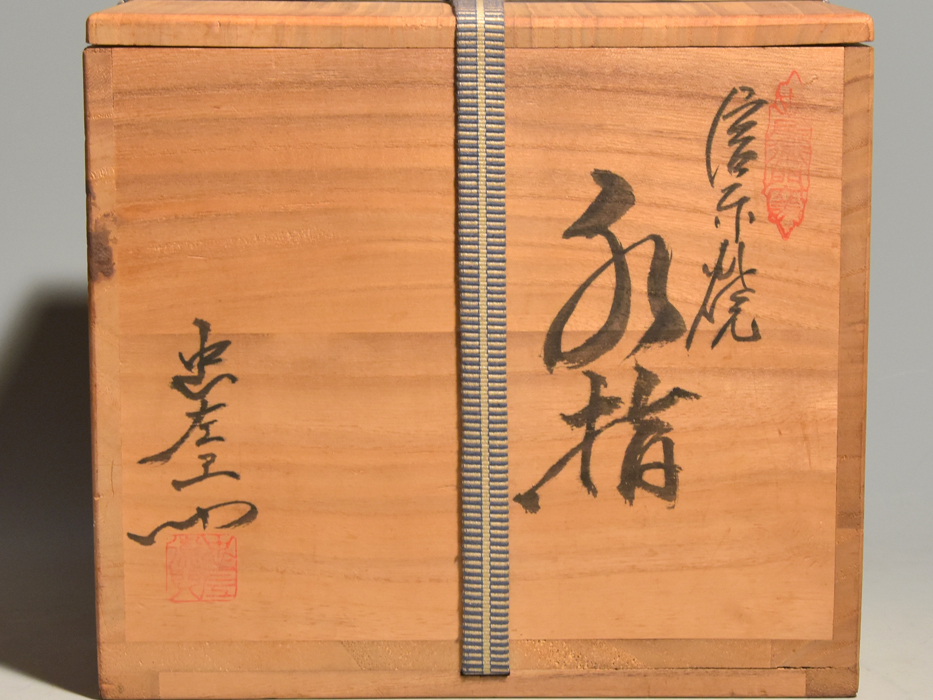 信楽焼
水指
忠左エ門